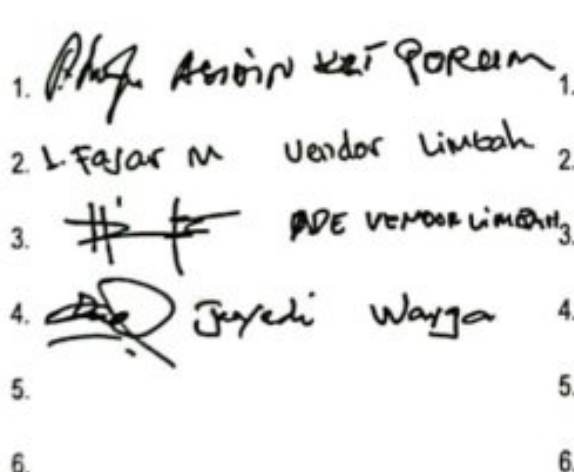 1. PORUM 1.
2. L. Fajar M Vendor Limbah 2.
3. ADE VENDOR LIMBAH 3.
4. Juyedi Warga 4.
5. 5.
6. 6.